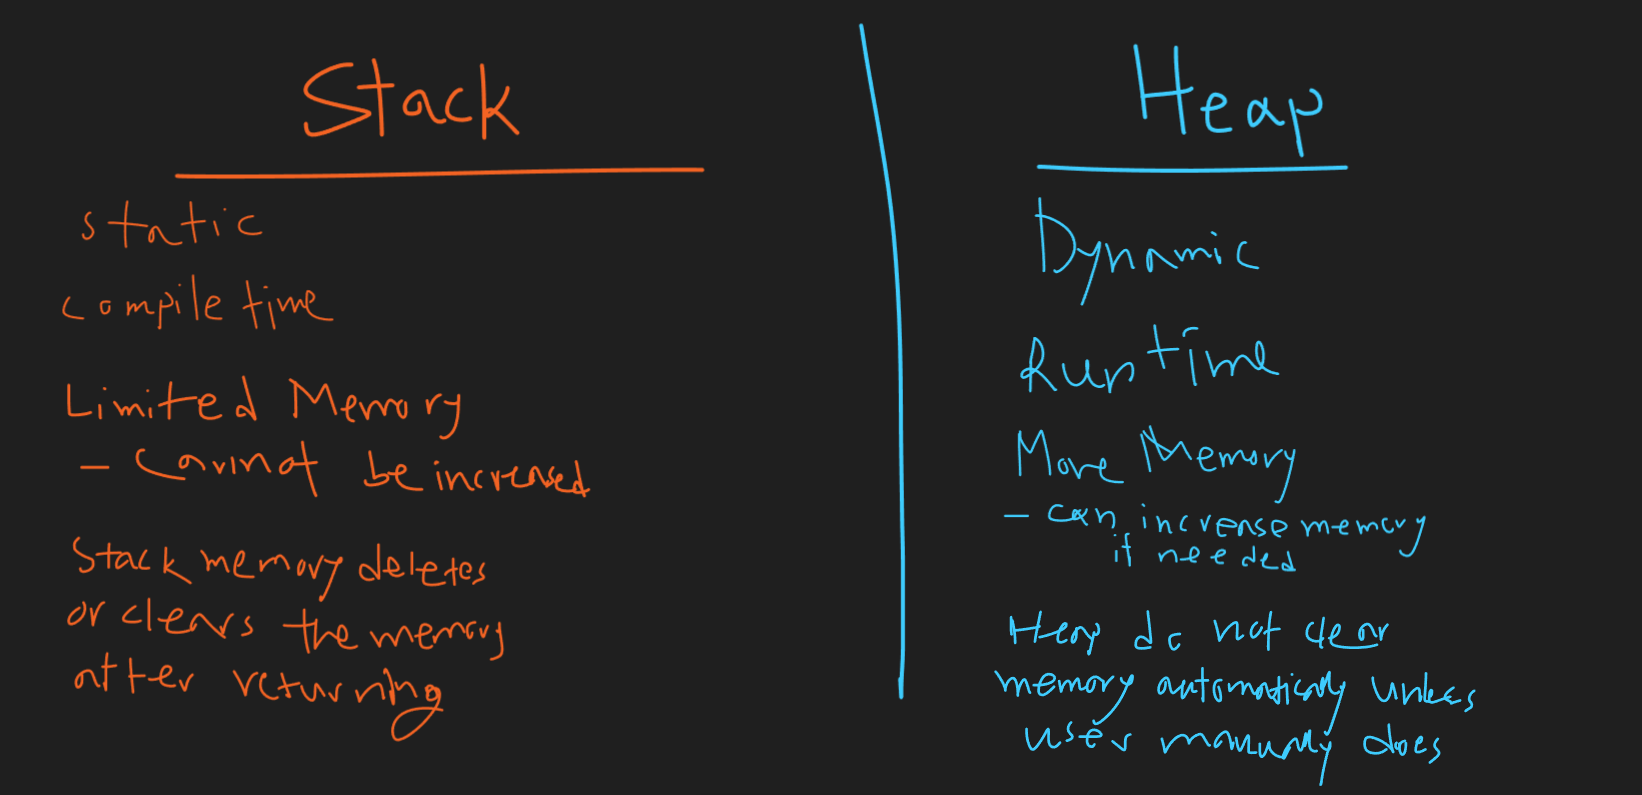 Stack
static
compile time
Limited Memory
- Cannot be increased
Stack memory deletes
or clears the memory
after returning
Heap
Dynamic
Runtime
More Memory
- can increase memory
if needed
Heap do not clear
memory automatically unless
user manually does